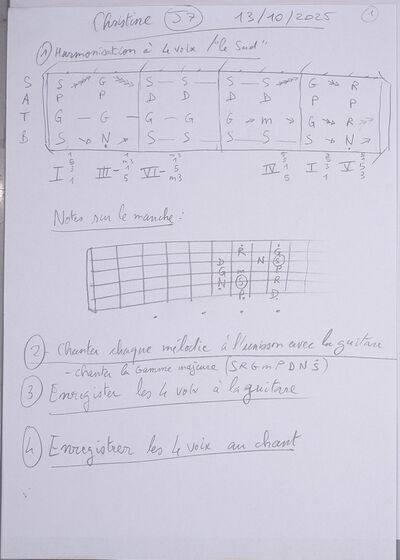 Christine S7 13/10/2025 1
1 Harmonisation à 4 voix "le Sud"
S S G S S S S G R
A P P D D D D P P
T G G G G G m G R
B S N S S S S S N
I III- VI- IV I V
Notes sur le manche :
R G
D N S
G m P
N S R
P D
2 - Chanter chaque mélodie à l'unisson avec la guitare
- chanter la Gamme majeure (S R G m P D N S)
3 Enregister les 4 voix à la guitare
4 Enregistrer les 4 voix au chant